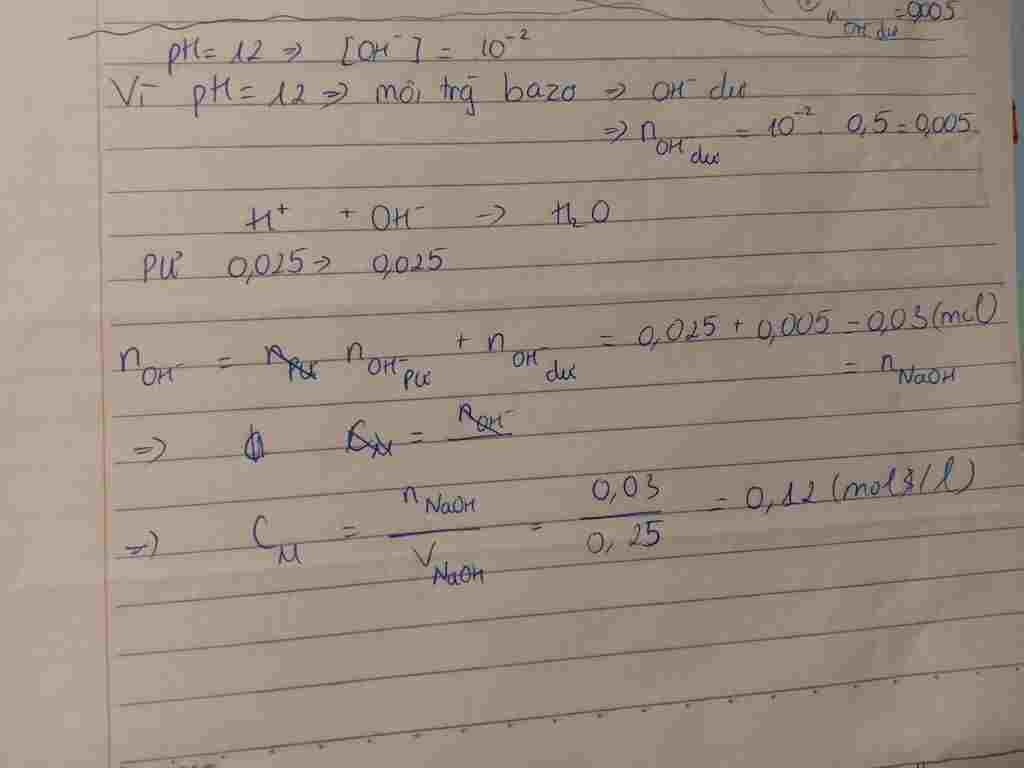 n OH⁻ dư = 0,005
pH = 12 => [OH⁻] = 10⁻²
Vì pH = 12 => môi trg bazo => OH⁻ dư
=> n OH⁻ dư = 10⁻² . 0,5 = 0,005
H⁺ + OH⁻ -> H₂O
PƯ 0,025 -> 0,025
n OH⁻ = n PƯ n OH⁻ PƯ + n OH⁻ dư = 0,025 + 0,005 = 0,03 (mol)
= n NaOH
=> C M = n OH⁻
=> C M = n NaOH / V NaOH = 0,03 / 0,25 = 0,12 (mol/l)